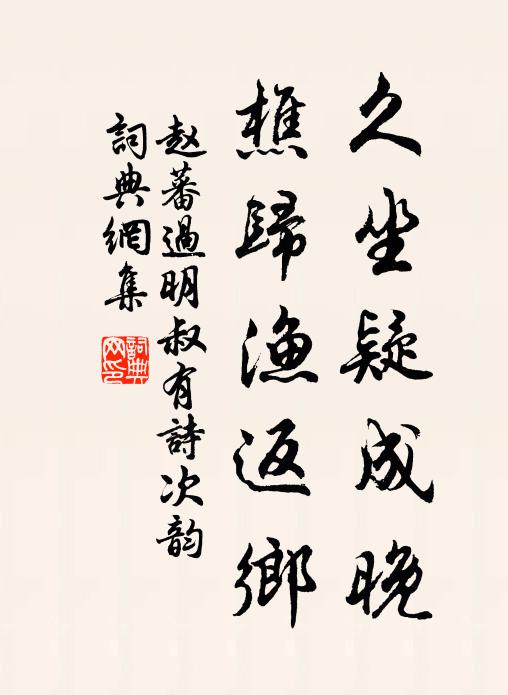 久坐疑成晚
樵歸漁返鄉
赵蕃過明叔有詩次韵
詞典網集
詞典網印